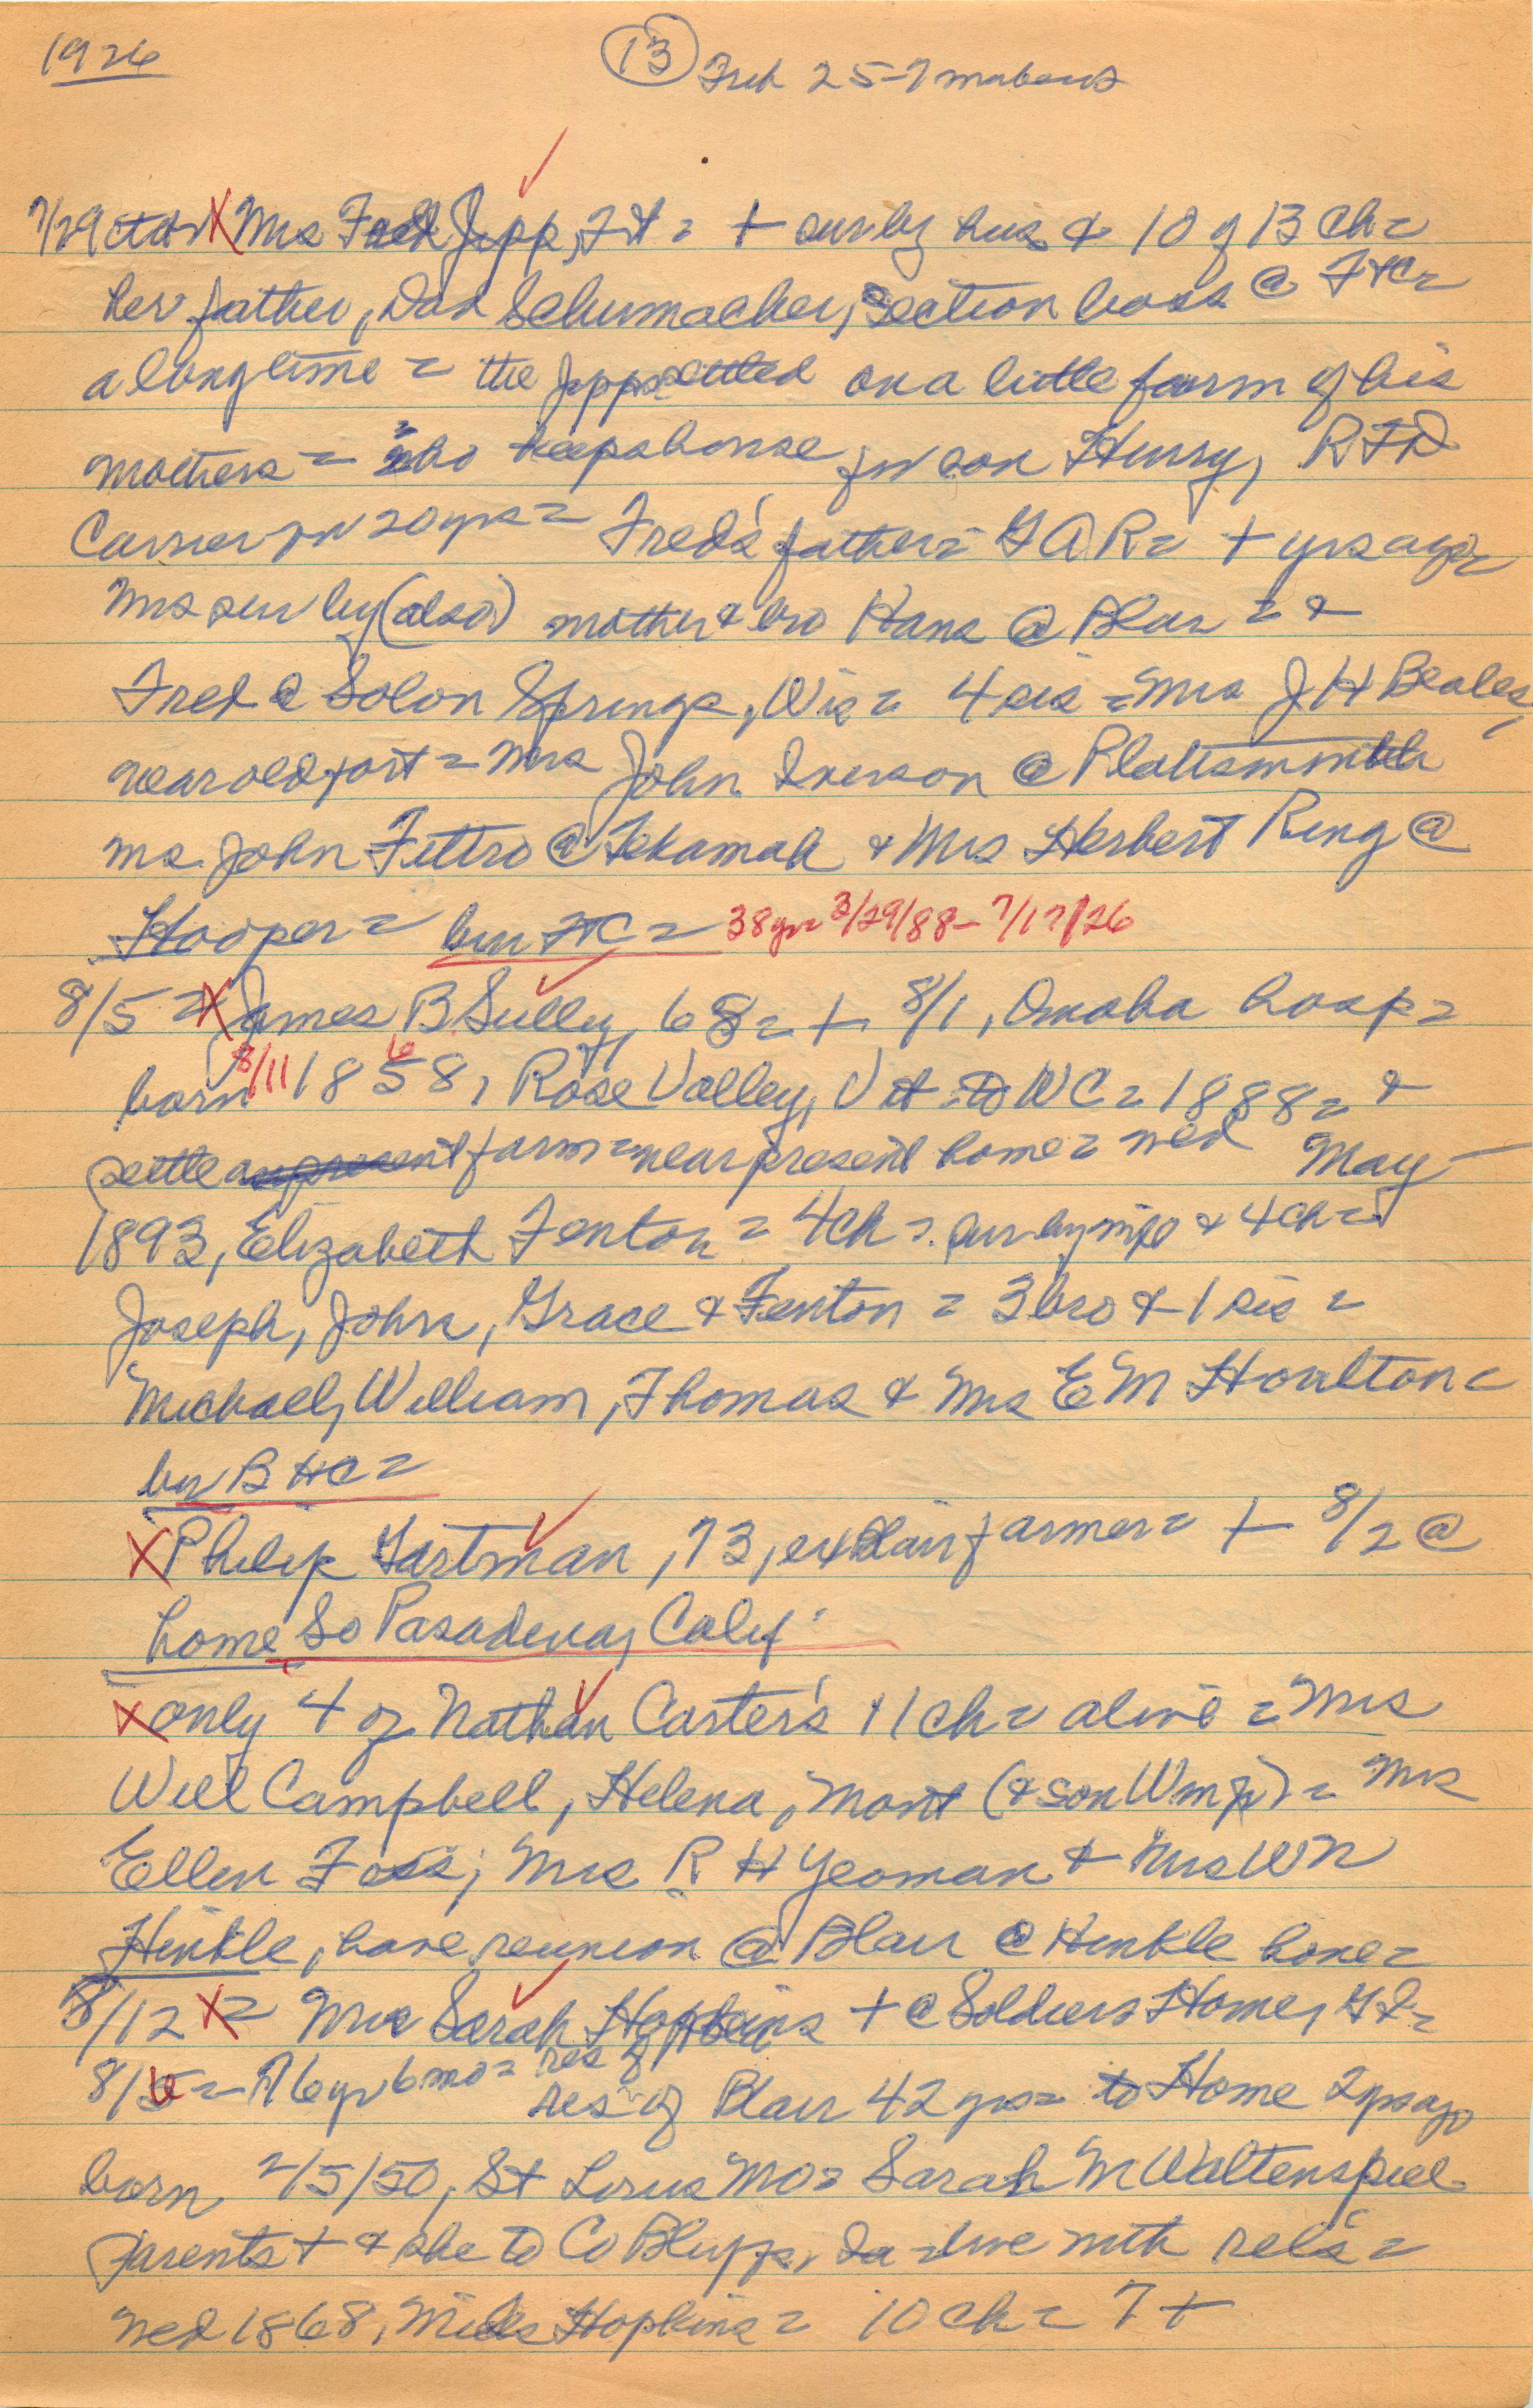 1926
13
7/29 X Mrs Fred Jipp, Ft = + sur by hus & 10 of 13 ch =
her father, Dad Schumacher, Section boss @ FtC =
a long time = the Jipps settled on a little farm of his
mothers = who keeps house for son Henry, RFD
Carrier for 20 yrs = Fred's father = GAR = + yrs ago =
Mrs sur by (also) mother & bro Hans @ Blair = &
Fred @ Solon Springs, Wis = 4 sis = Mrs J H Beales,
near old fort = Mrs John Iverson @ Plattsmouth
Mrs. John Fittro @ Tekamah & Mrs Herbert Ring @
Hooper = bur FtC = 38 yr = 3/29/88 - 7/17/26
8/5 = X James B Sully, 68 = + 8/1, Omaha hosp =
born 8/11 1858, Rose Valley, Vt = to WC = 1888 = &
settle farm = near present home = wed May
1893, Elizabeth Fenton = 4 ch = sur by wife & 4 ch =
Joseph, John, Grace & Fenton = 3 bro & 1 sis =
Michael, William, Thomas & Mrs E M Houlton =
bur B HC =
X Philip Gartman, 73, ex Blair farmer = + 8/2 @
home So Pasadena, Calif
X only 4 of Nathan Carter's 11 ch = alive = Mrs
Will Campbell, Helena, Mont (& son Wm Jr) = Mrs
Ellen Foss; Mrs R H Yeoman & Mrs W N
Hinkle, have reunion @ Blair @ Hinkle home =
8/12 X = Mrs Sarah Hopkins + @ Soldiers Home, GI =
8/6 = 76 yr 6 mo = res of
res of Blair 42 yrs = to Home 2 yrs ago
born 2/5/50, St Louis Mo = Sarah M Waltenspiel
Parents + & she to Co Bluffs, Ia = live with rels =
wed 1868, Miles Hopkins = 10 ch = 7 +